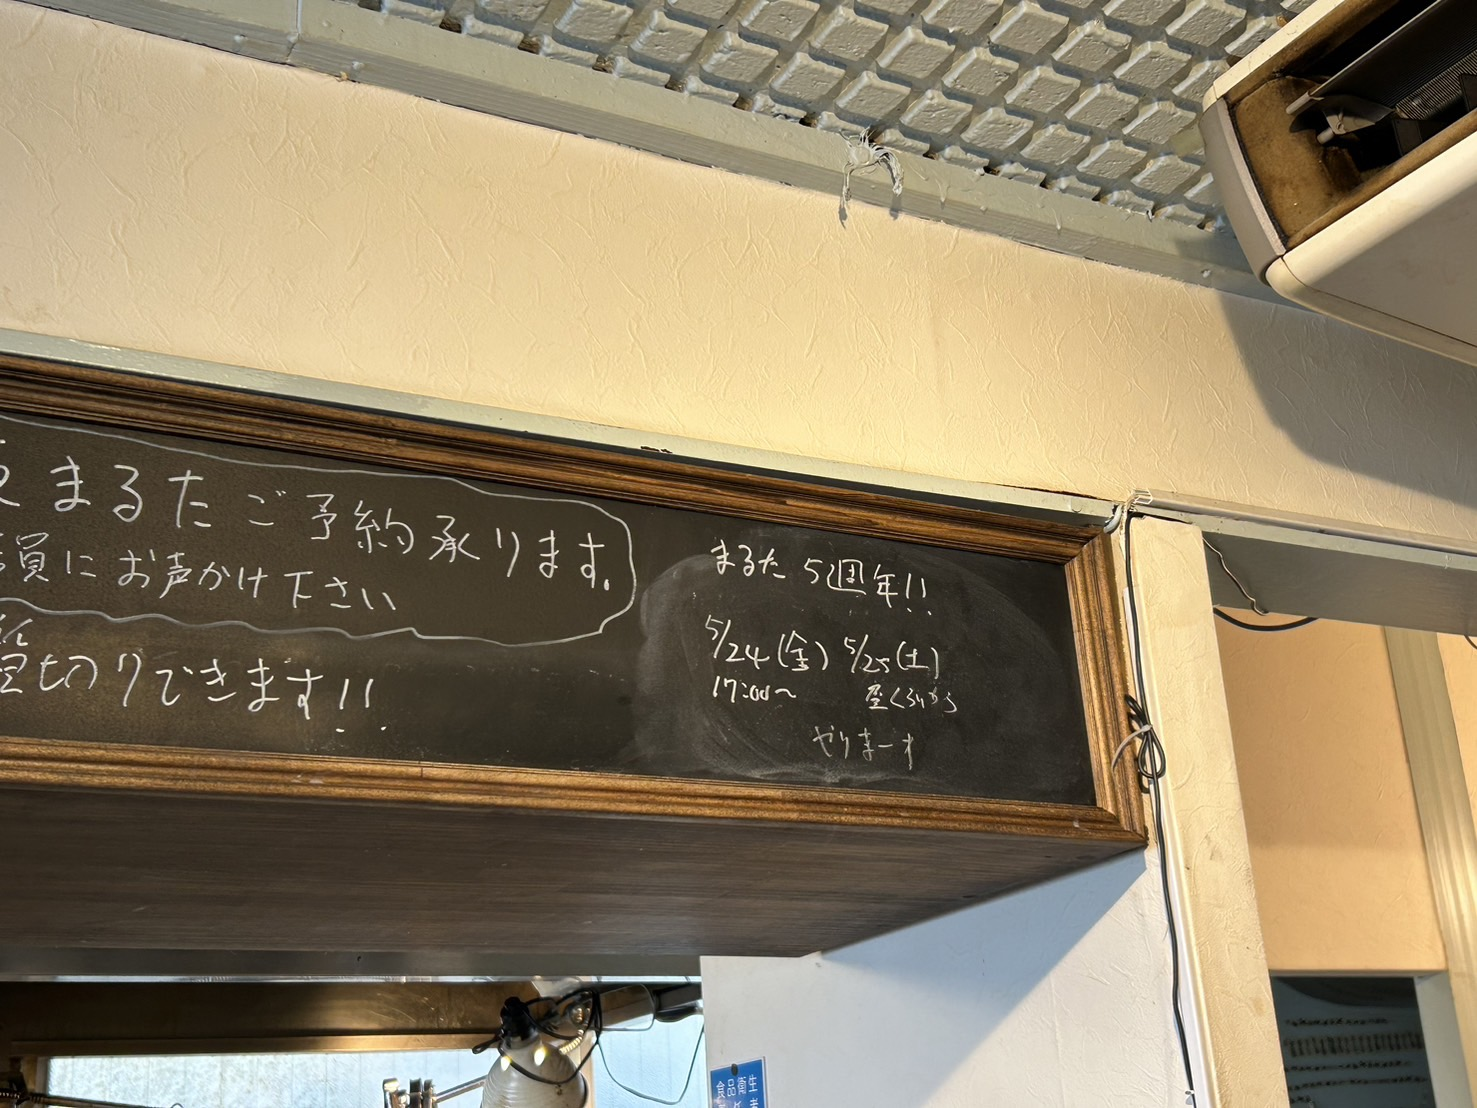 まるたご予約承ります。
員にお声かけ下さい
切りできます!!
まるた 5週年!!
5/24(金) 5/25(土)
17:00〜 昼くらいから
やりまーす
食品衛生